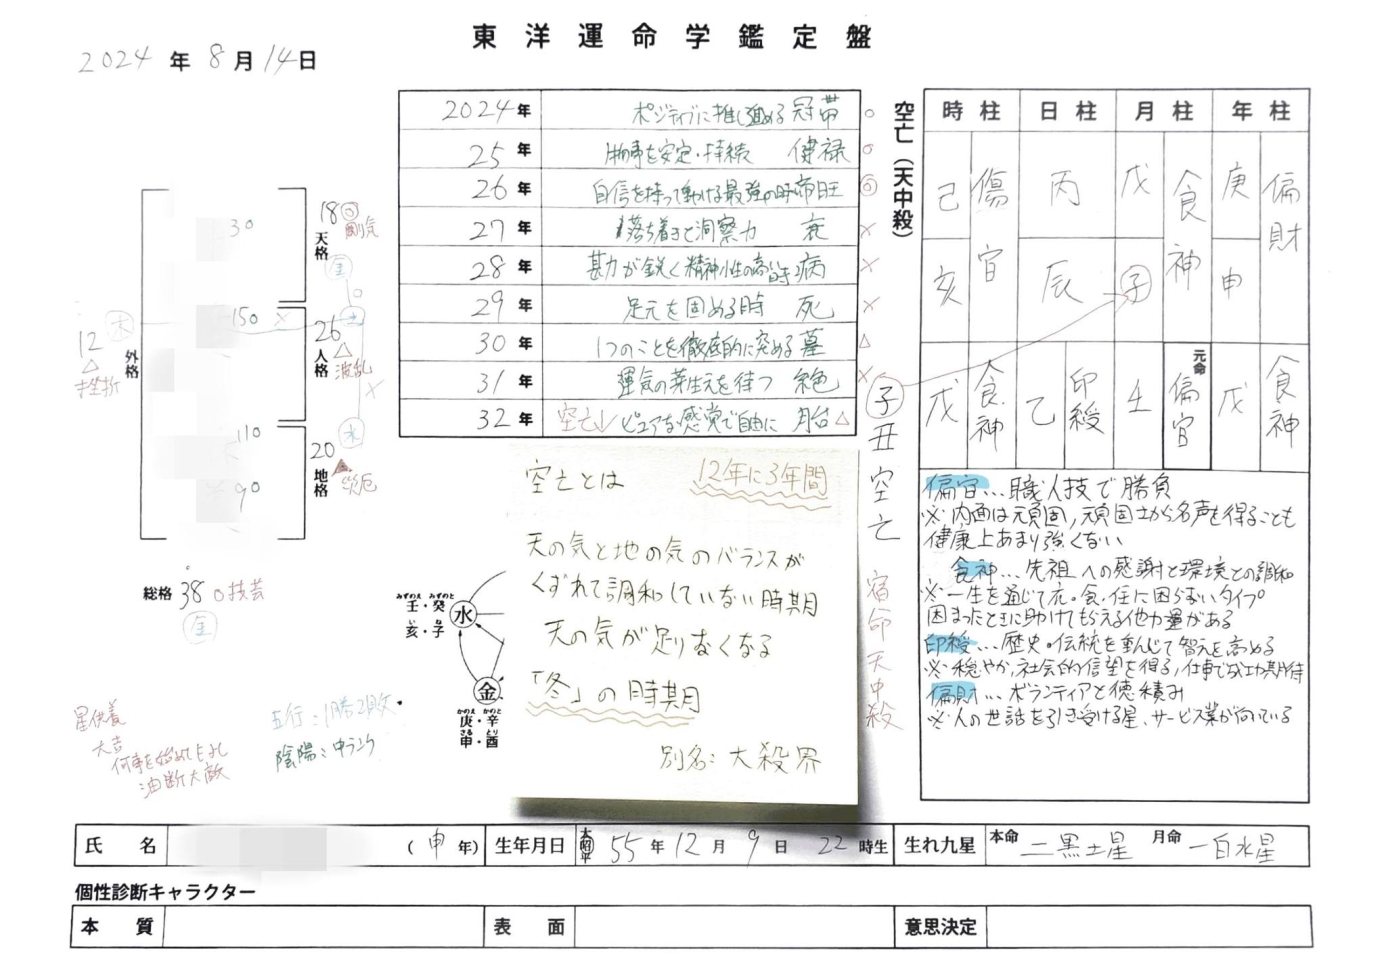 東洋運命学鑑定盤
2024年8月14日
2024年 ポジティブに推し進める 冠帯 ○
25年 物事を安定・持続 健禄 ○
26年 自信を持って動ける最強の時 帝旺 ◎
27年 落ち着きと洞察力 衰 ×
28年 勘が鋭く精神性の高い時 病 ×
29年 足元を固める時 死 ×
30年 1つのことを徹底的に究める 墓 △
31年 運気の芽生えを待つ 絶 ×
32年 空亡↓ ピュアな感覚で自由に 胎 △
空亡(天中殺)
子丑空亡
宿命天中殺
時柱 日柱 月柱 年柱
己 傷官 丙 戊 食神 庚 偏財
亥 辰 子 申
元命
戊 食神 乙 印綬 壬 偏官 戊 食神
偏官…職人技で勝負
※内面は頑固,頑固さから名声を得ることも
健康上あまり強くない
食神…先祖への感謝と環境との調和
※一生を通じて衣・食・住に困らないタイプ
困ったときに助けてもらえる他力運がある
印綬…歴史・伝統を重んじて智を高める
※穏やか,社会的信望を得る,仕事での成功期待
偏財…ボランティアと徳積み
※人の世話を引き受ける星、サービス業が向いている
30
18◎
剛気
天格
金
150 ×
26
△
波乱
人格
12 木
△
挫折
外格
110
90
20
水
災厄
地格
総格 38○技芸
金
星供養
大吉
何事を始めてもよし
油断大敵
五行:1勝2敗
陰陽:中ランク
みずのえ みずのと
壬・癸
い ね
亥・子
水
金
かのえ かのと
庚・辛
さる とり
申・酉
空亡とは 12年に3年間
天の気と地の気のバランスが
くずれて調和していない時期
天の気が足りなくなる
「冬」の時期
別名:大殺界
氏名 (申年) 生年月日 大昭平 55年12月9日22時生 生れ九星 本命 二黒土星 月命 一白水星
個性診断キャラクター
本質 表面 意思決定